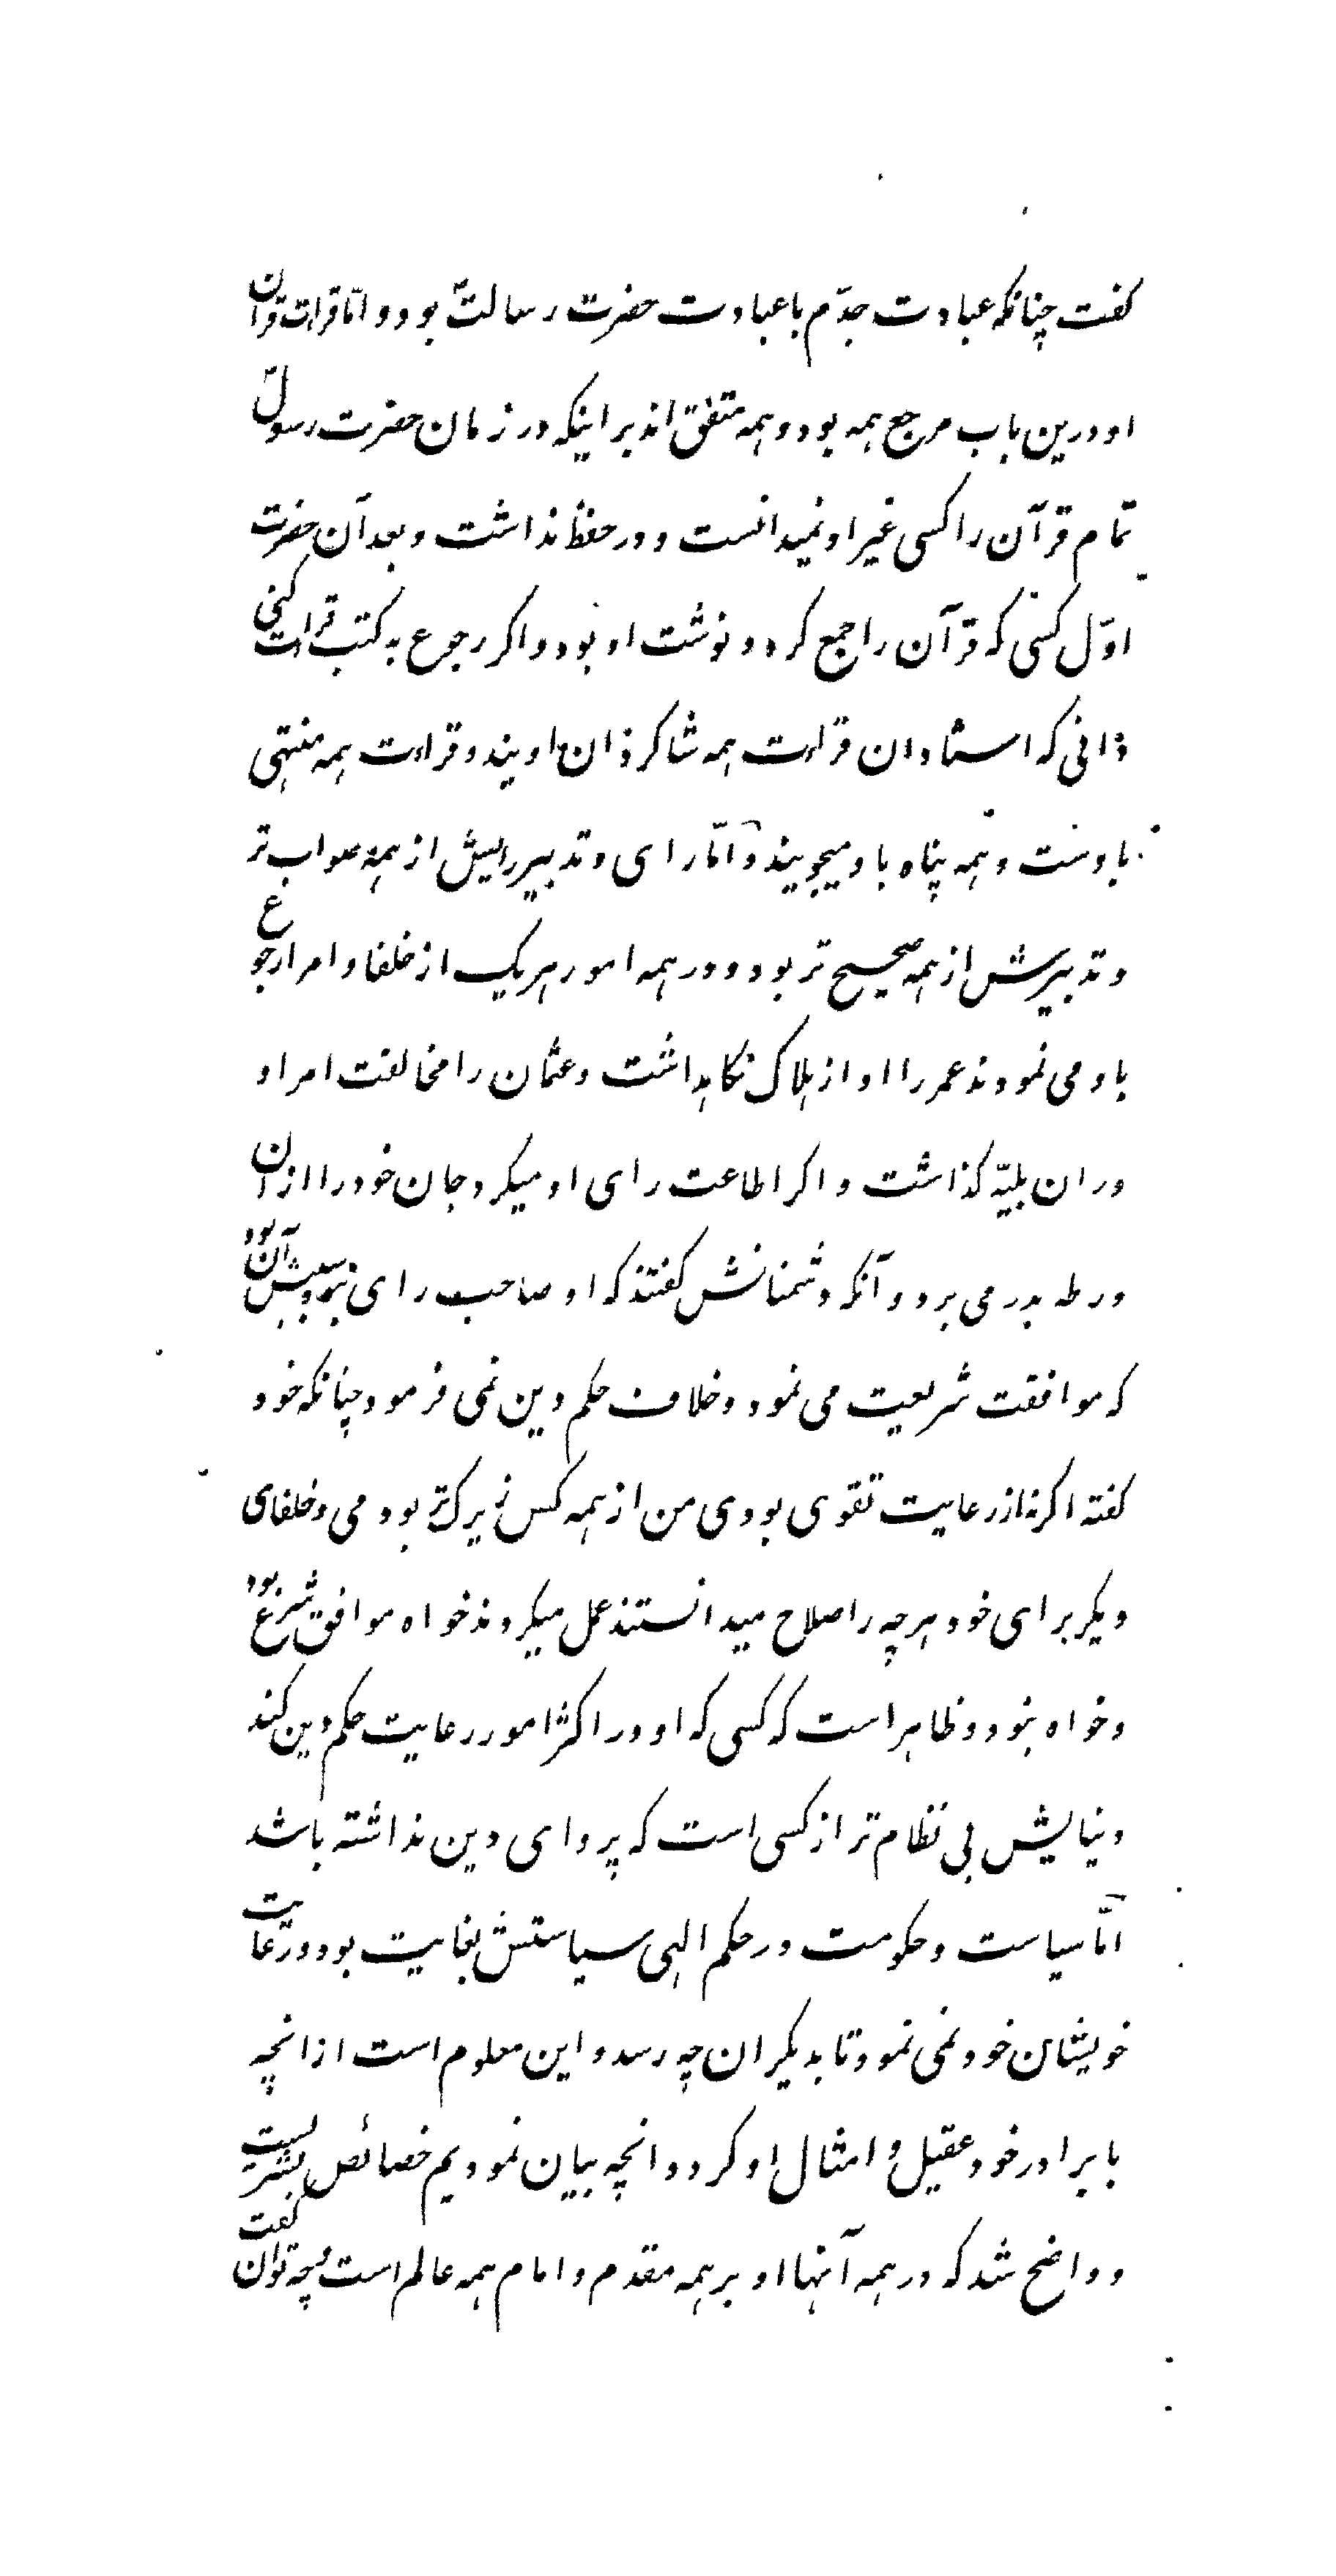 گفت چنانکه عبادت جدّم با عبادت حضرت رسالت بود و امّا قرات قرآن
او درین باب مرجع همه بود و همه متفق اند بر اینکه در زمان حضرت رسول
تمام قرآن را کسی غیر او نمیدانست و در حفظ نداشت و بعد آن حضرت
اوّل کسی که قرآن را جمع کرد و نوشت او بود و اکر رجوع به کتب قرات کنی
دانی که استادان قراءت همه شاکردان اویند و قراءت همه منتهی
باوست و همه پناه باو میجویند و امّا رای و تدبیر رایش از همه صواب تر
و تدبیرش از همه صحیح تر بود و در همه امور هریک از خلفا و امرا رجوع
باو می نمودند عمر را او از هلاک نکاهداشت و عثمان را مخالفت امر او
دران بلیّه کذاشت و اکر اطاعت رای او میکرد جان خود را ازان
ورطه بدر می برد و آنکه دشمنانش کفتند که او صاحب رای نبود سببش آن بود
که موافقت شریعت می نمود و خلاف حکم دین نمی فرمود چنانکه خود
کفته اکر نه از رعایت تقوی بودی من از همه کس زیرک تر بودمی و خلفای
دیکر برای خود هرچه را صلاح میدانستند عمل میکردند خواه موافق شرع بود
و خواه نبود و ظاهر است که کسی که او در اکثر امور رعایت حکم دین کند
دنیایش بی نظام تر از کسی است که پروای دین نداشته باشد
امّا سیاست و حکومت در حکم الهی سیاستش بغایت بود و رعایت
خویشان خود نمی نمود تا بدیکران چه رسد و این معلوم است از انچه
با برادر خود عقیل و امثال او کرد و انچه بیان نمودیم خصائص بشریست
و واضح شد که در همه آنها او بر همه مقدم و امام همه عالم است و چه توان کفت